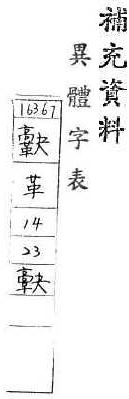 補充資料
異體字表
16367
革
14
23